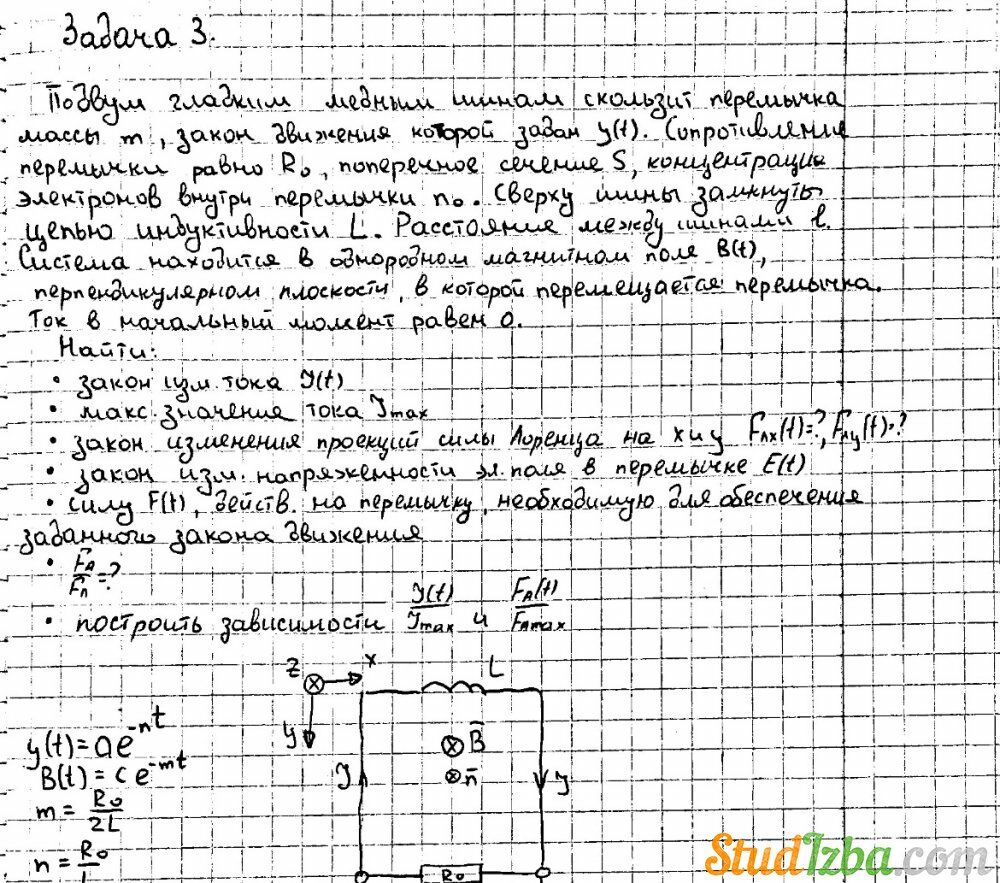 Задача 3.
По двум гладким медным шинам скользит перемычка
массы m, закон движения которой задан y(t). Сопротивление
перемычки равно R₀, поперечное сечение S, концентрация
электронов внутри перемычки n₀. Сверху шины замкнуты
цепью индуктивности L. Расстояние между шинами l.
Система находится в однородном магнитном поле B(t),
перпендикулярном плоскости, в которой перемещается перемычка.
Ток в начальный момент равен 0.
Найти:
• закон изм. тока J(t)
• макс. значение тока Jmax
• закон изменения проекций силы Лоренца на x и y Fлx(t)=?, Fлy(t)=?
• закон изм. напряженности эл. поля в перемычке E(t)
• силу F(t), действ. на перемычку, необходимую для обеспечения
заданного закона движения
• FА/Fл=?
• построить зависимости J(t)/Jmax и FА(t)/FАmax
z x L
y
y(t)=ae^-nt
B̄
B(t)=ce^-mt
n̄
J J
m=R₀/2L
n=R₀/
R₀
StudIzba.com